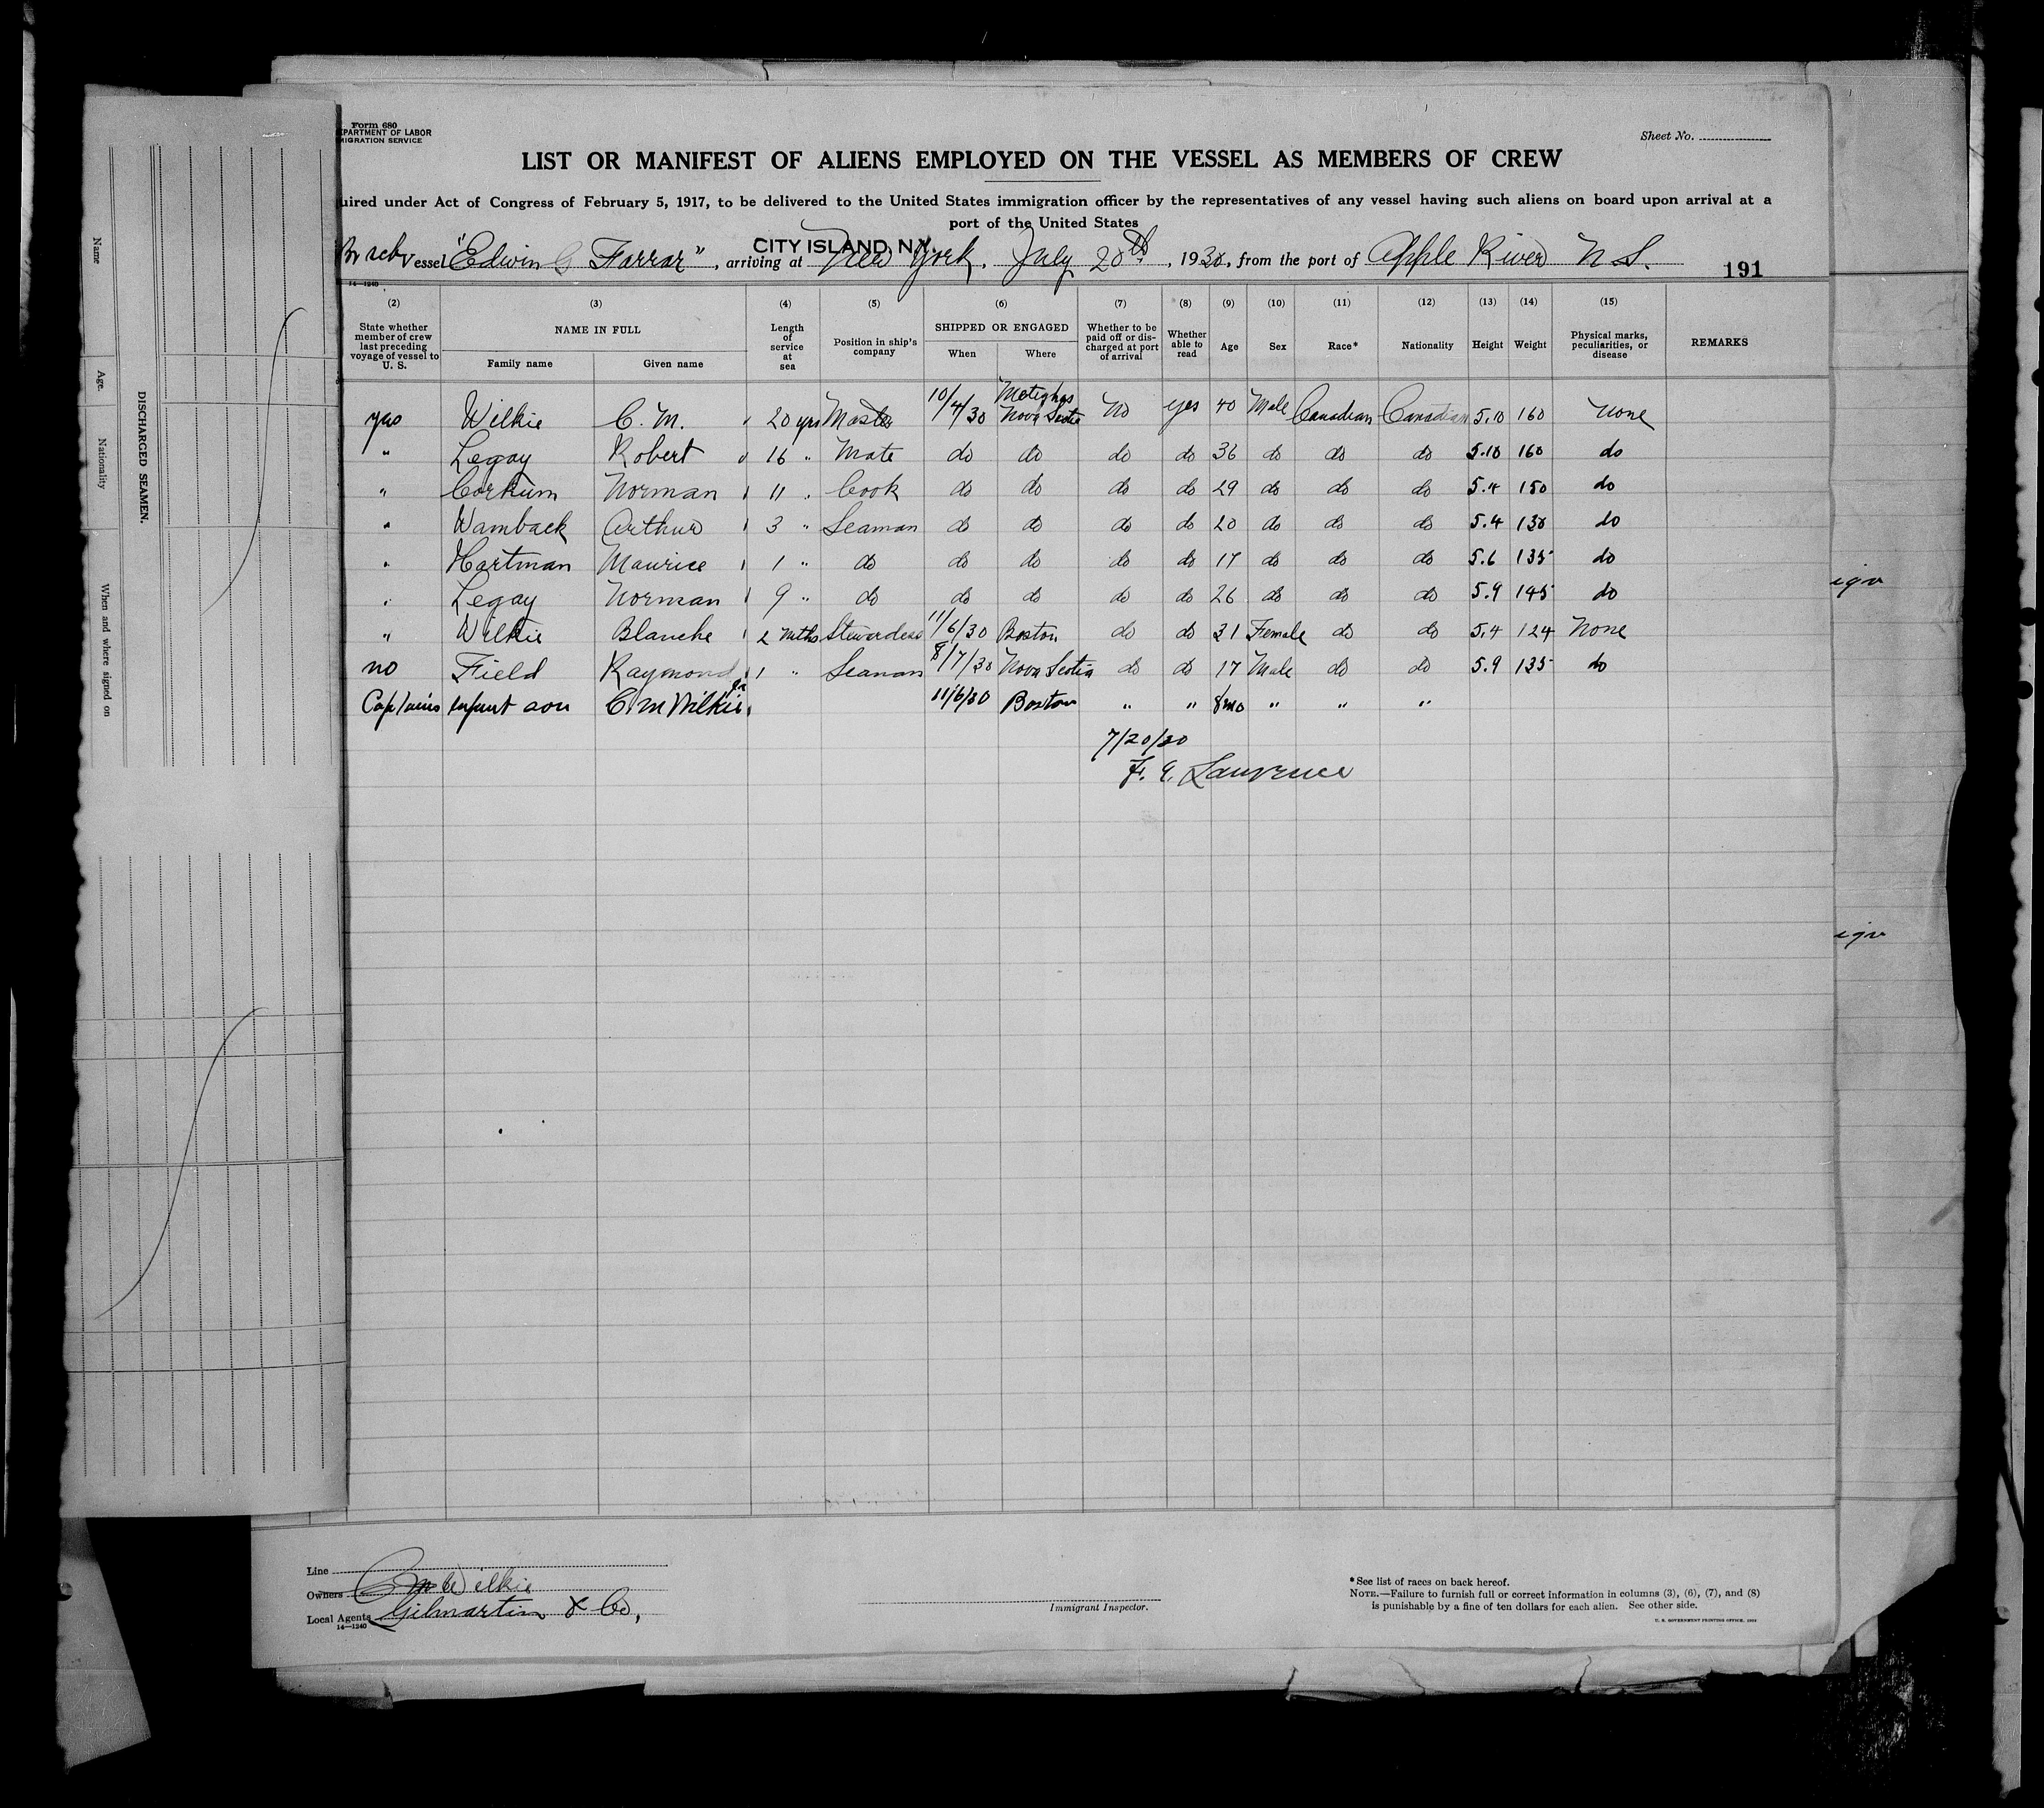 Form 680
EPARTMENT OF LABOR
MIGRATION SERVICE
Sheet No.
LIST OR MANIFEST OF ALIENS EMPLOYED ON THE VESSEL AS MEMBERS OF CREW
uired under Act of Congress of February 5, 1917, to be delivered to the United States immigration officer by the representatives of any vessel having such aliens on board upon arrival at a
port of the United States
CITY ISLAND, N.Y.
Br sch Vessel "Edwin G Farrar", arriving at New York, July 20th, 1930, from the port of Apple River N S.
191
14—1240
(2) (3) (4) (5) (6) (7) (8) (9) (10) (11) (12) (13) (14) (15)
State whether member of crew last preceding voyage of vessel to U. S.
NAME IN FULL
Family name Given name
Length of service at sea
Position in ship's company
SHIPPED OR ENGAGED
When Where
Whether to be paid off or discharged at port of arrival
Whether able to read
Age Sex Race* Nationality Height Weight
Physical marks, peculiarities, or disease
REMARKS
yes Wilkie C. M. 20 yrs Master 10/4/30 Meteghas Nova Scotia No yes 40 Male Canadian Canadian 5.10 160 None
" Legay Robert 16 " Mate do do do do 36 do do do 5.10 160 do
" Corkum Norman 11 " Cook do do do do 29 do do do 5.4 150 do
" Wamback Arthur 3 " Seaman do do do do 20 do do do 5.4 130 do
" Hartman Maurice 1 " do do do do do 17 do do do 5.6 135 do
" Legay Norman 9 " do do do do do 26 do do do 5.9 145 do
" Wilkie Blanche 2 mths Stewardess 11/6/30 Boston do do 31 Female do do 5.4 124 None
no Field Raymond 1 " Seaman 8/7/30 Nova Scotia do do 17 Male do do 5.9 135 do
Captains Infant son C. M Wilkie jr 11/6/30 Boston " " 8mo " " "
7/20/30
F. E. Lawrence
Name
Age.
Nationality
When and where signed on
DISCHARGED SEAMEN.
Line
Owners C M Wilkie
Local Agents Gilmartin & Co,
14—1240
Immigrant Inspector.
*See list of races on back hereof.
NOTE.—Failure to furnish full or correct information in columns (3), (6), (7), and (8)
is punishable by a fine of ten dollars for each alien. See other side.